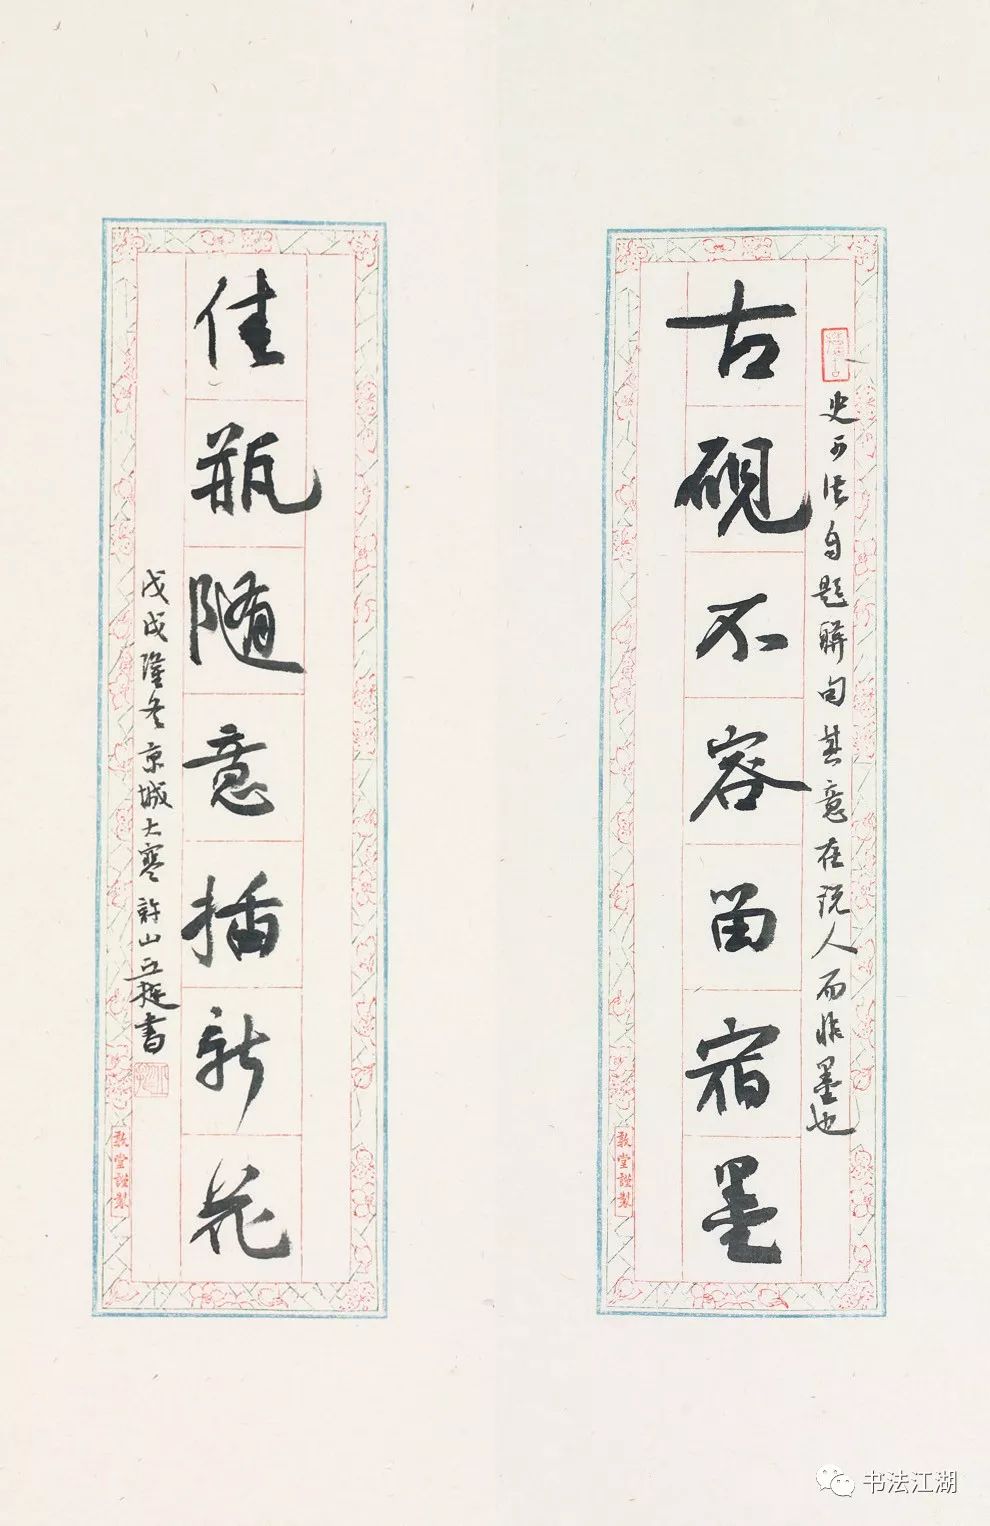 古砚不容留宿墨
史可法自题联句其意在说人而非墨也
敦堂謹製
佳瓶随意插新花
戊戌隆冬京城大寒許山
書
敦堂謹製
书法江湖